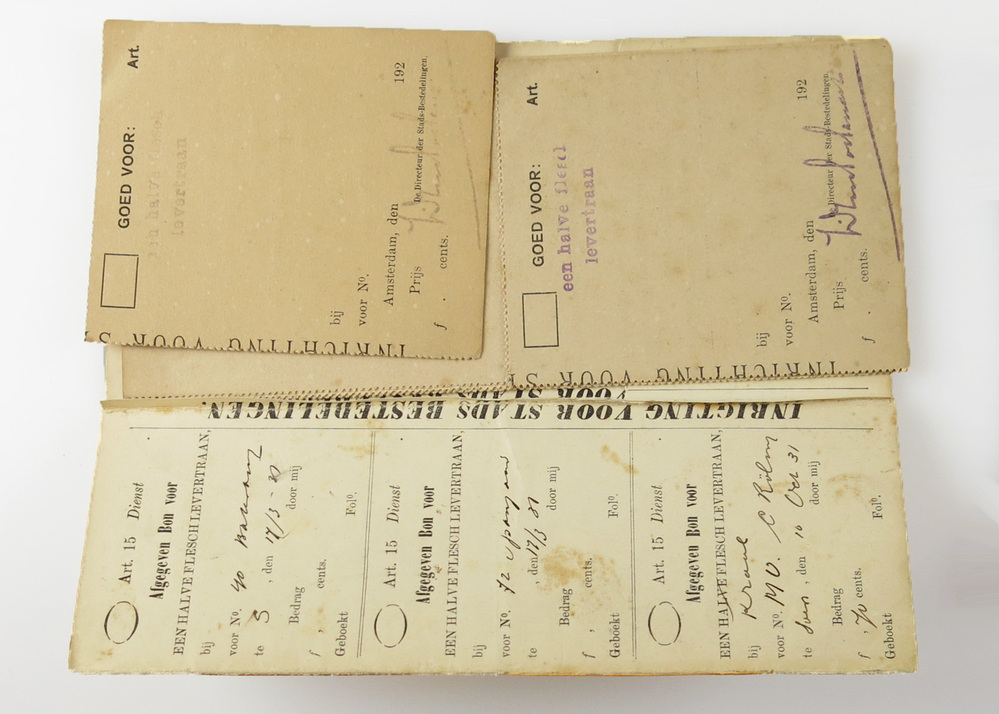 Art.
GOED VOOR:
een halve flesch
levertraan
bij
voor No.
Amsterdam, den 192
De Directeur der Stads-Bestedelingen.
Prijs
f . cents.
INRICHTING VOOR ST
Art.
GOED VOOR:
een halve flesch
levertraan
bij
voor No.
Amsterdam, den 192
De Directeur der Stads-Bestedelingen.
Prijs
f . cents.
INRICHTING VOOR ST
INRIGTING VOOR STADS BESTEDELINGEN.
Art. 15 Dienst
Afgegeven Bon voor
EEN HALVE FLESCH LEVERTRAAN,
bij
voor No. 40
te , den 17/3 - 31
Bedrag door mij
f , cents.
Geboekt Folo.
Art. 15 Dienst
Afgegeven Bon voor
EEN HALVE FLESCH LEVERTRAAN,
bij
voor No. 72
te , den 17/3 31
Bedrag door mij
f , cents.
Geboekt Folo.
Art. 15 Dienst
Afgegeven Bon voor
EEN HALVE FLESCH LEVERTRAAN,
bij
voor No.
te , den 10 Oct 31
Bedrag door mij
f , 70 cents.
Geboekt Folo.